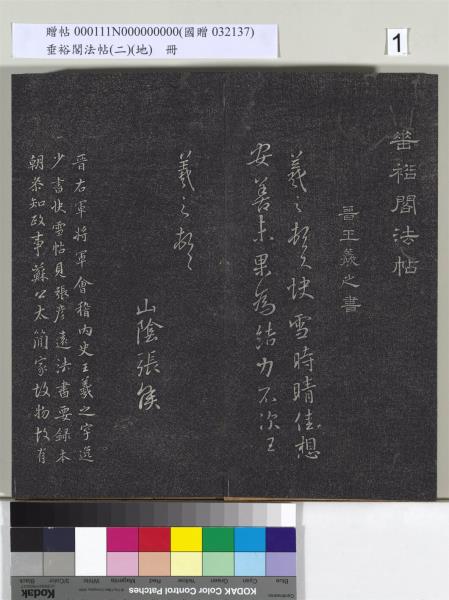 贈帖 000111N000000000(國贈 032137)
垂裕閣法帖(二)(地) 冊
1
垂裕閣法帖
晉王羲之書
羲之頓首快雪時晴佳想
安善未果為結力不次王
羲之頓首
山陰張侯
晉右軍將軍會稽內史王羲之字逸
少書快雪帖見張彥遠法書要錄本
朝參知政事蘇公太簡家故物故有
Blue Cyan Green Yellow Red Magenta White 3/Color Black
Kodak Color Control Patches
Kodak